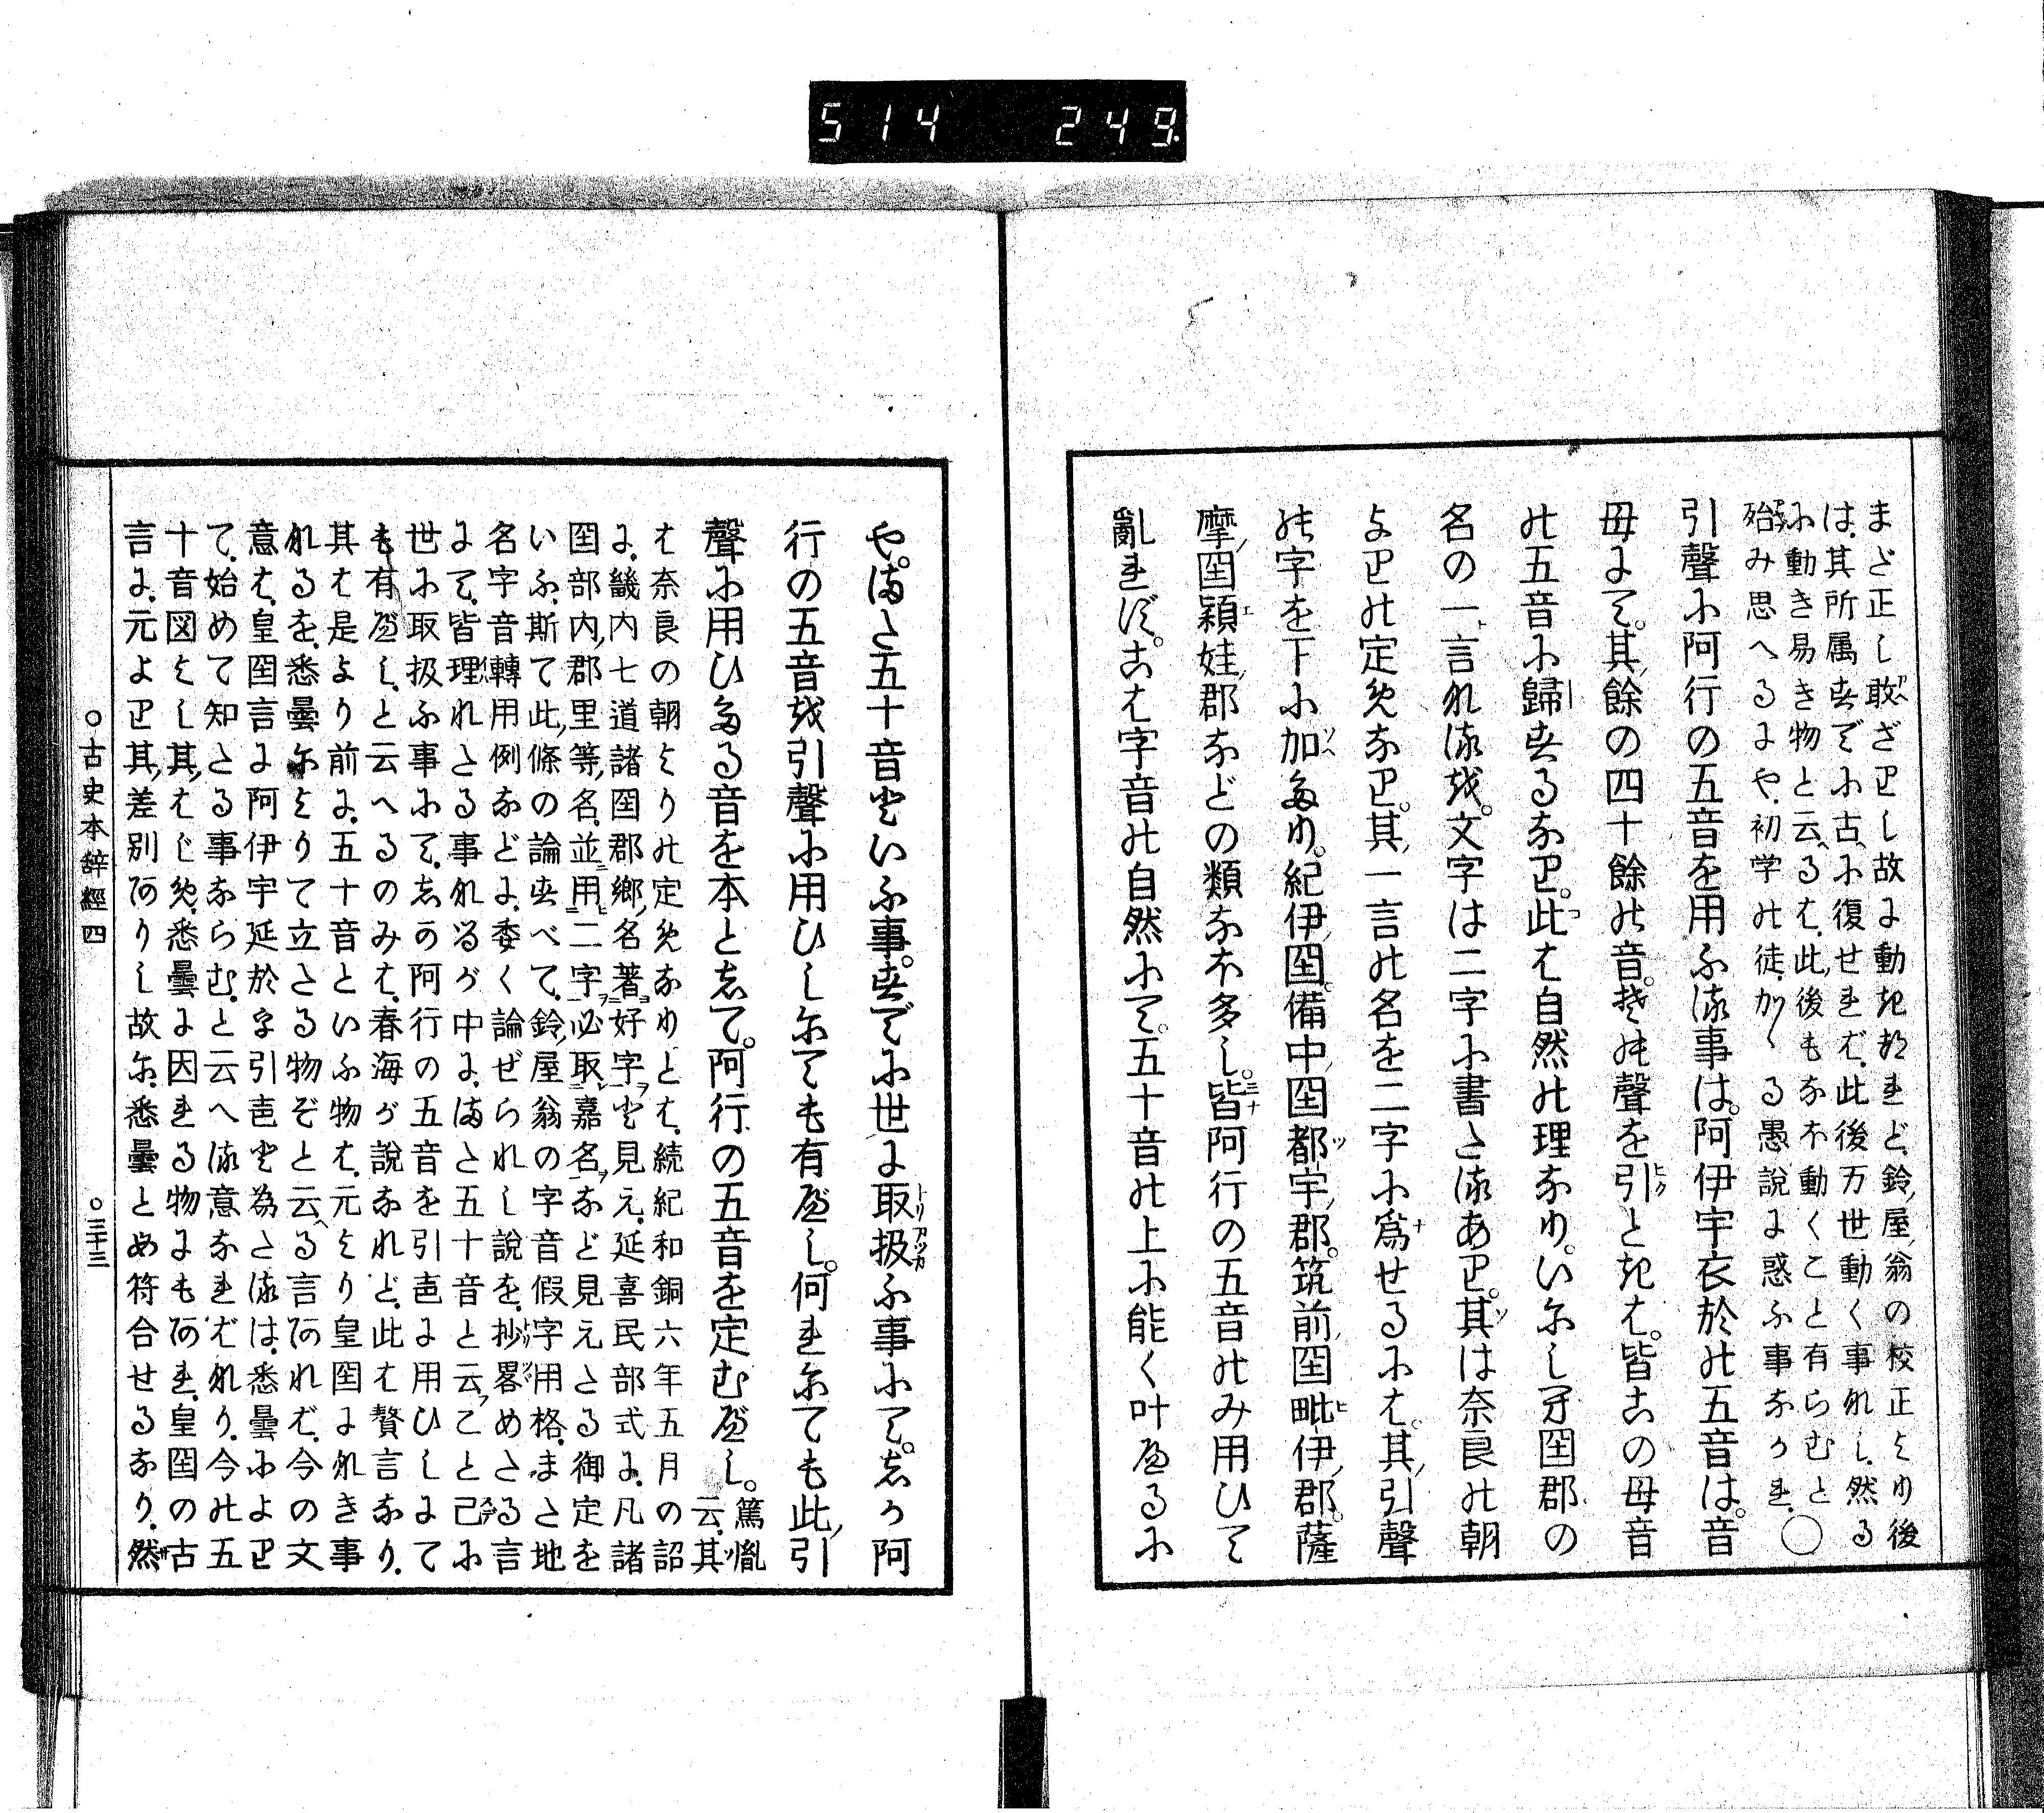 514 249
まざ正し敢ざりし故に動きねれど、鈴屋翁の校正より後
は、其所属すでに古に復せれば、此後万世動く事なし、然る
に動き易き物と云へるは、此後もなほ動くこと有らむと
殆み思へるにや、初学の徒、かゝる愚説に惑ふ事なかれ、○
引聲に阿行の五音を用ふる事は。阿伊宇衣於の五音は。音
母にて。其餘の四十餘の音。その聲を引ときは。皆この母音
の五音に歸するなり。此は自然の理なり。いにし牙国郡の
名の一言なるを。文字は二字に書たるあり。其は奈良の朝
よりの定めなり。其一言の名を二字に爲せるには。其引聲
の字を下に加たり。紀伊国。備中国都宇郡。筑前国毗伊郡。薩
摩国頴娃郡などの類なほ多し。皆阿行の五音のみ用ひて
亂れず。こは字音の自然にて。五十音の上に能く叶へるに
や。また五十音といふ事。すでに世に取扱ふ事にて。しか阿
行の五音を引聲に用ひしにても有べし。何れにても此引
聲に用ひたる音を本として。阿行の五音を定むべし。篤胤云、其
は奈良の朝よりの定めなりとは、続紀和銅六年五月の詔
に、畿内七道諸国郡郷名著好字と見え、延喜民部式に、凡諸
国部内郡里等名、並用二字必取嘉名など見えたる御定を
いふ、斯て此條の論すべて、鈴屋翁の字音假字用格、また地
名字音轉用例などに、委く論ぜられし說を、抄畧めたる言
にて、皆理れたる事なるが中に、また五十音と云こと已に
世に取扱ふ事にて、しか阿行の五音を引声に用ひしにて
も有べし、と云へるのみは、春海が說なれど、此は贅言なり、
其は是より前に、五十音といふ物は、元より皇国になき事
なるを、悉曇によりて立たる物ぞと云へる言あれば、今の文
意は、皇国言に阿伊宇延於を引声と為たるは、悉曇により
て、始めて知たる事ならむ、と云へる意なればなり、今の五
十音図とし其はじめ、悉曇に因れる物にもあれ、皇国の古
言に、元より其差別ありし故に、悉曇とめ符合せるなり、然
○古史本辞經四 ○三十三